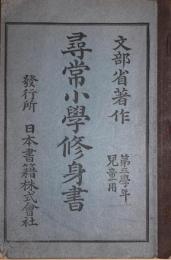 文部省著作
第五學年
兒童用
尋常小學修身書
發行所 日本書籍株式會社